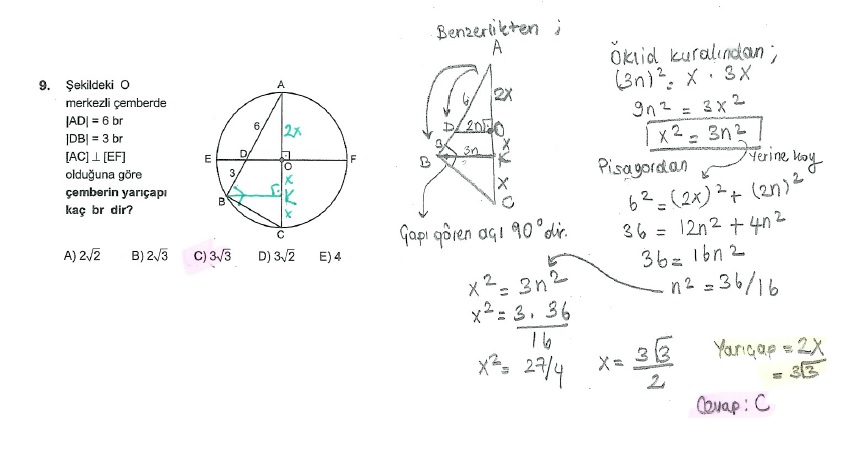 9. Şekildeki O
merkezli çemberde
|AD| = 6 br
|DB| = 3 br
[AC] ⊥ [EF]
olduğuna göre
çemberin yarıçapı
kaç br dir?
A
6
2x
E
D
O
F
3
x
B
K
x
C
A) 2√2 B) 2√3 C) 3√3 D) 3√2 E) 4
Benzerlikten ;
A
6
2x
D
2n
O
3
x
B
3n
K
x
C
Çapı gören açı 90° dir.
Öklid kuralından ;
(3n)² = x · 3x
9n² = 3x²
x² = 3n²
Yerine koy
Pisagordan
6² = (2x)² + (2n)²
36 = 12n² + 4n²
36 = 16n²
n² = 36/16
x² = 3n²
x² = 3.36
16
x² = 27/4
x = 3√3
2
Yarıçap = 2x
= 3√3
Cevap : C